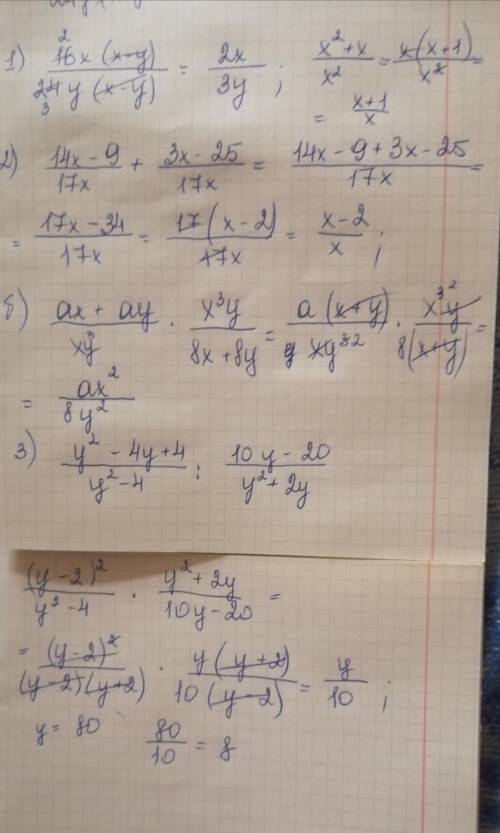 1) 16x (x-y) / 24y (x-y) = 2x / 3y ; x² + x / x² = x (x+1) / x² =
= x+1 / x
2) 14x - 9 / 17x + 3x - 25 / 17x = 14x - 9 + 3x - 25 / 17x =
= 17x - 34 / 17x = 17 (x - 2) / 17x = x - 2 / x ;
б) ax + ay / xy³ · x³y / 8x + 8y = a (x+y) / xy³ · x³y / 8(x+y) =
= ax² / 8y²
3) y² - 4y + 4 / y² - 4 : 10y - 20 / y² + 2y
(y - 2)² / y² - 4 · y² + 2y / 10y - 20 =
= (y - 2)² / (y - 2)(y + 2) · y (y + 2) / 10 (y - 2) = y / 10 ;
y = 80 80 / 10 = 8